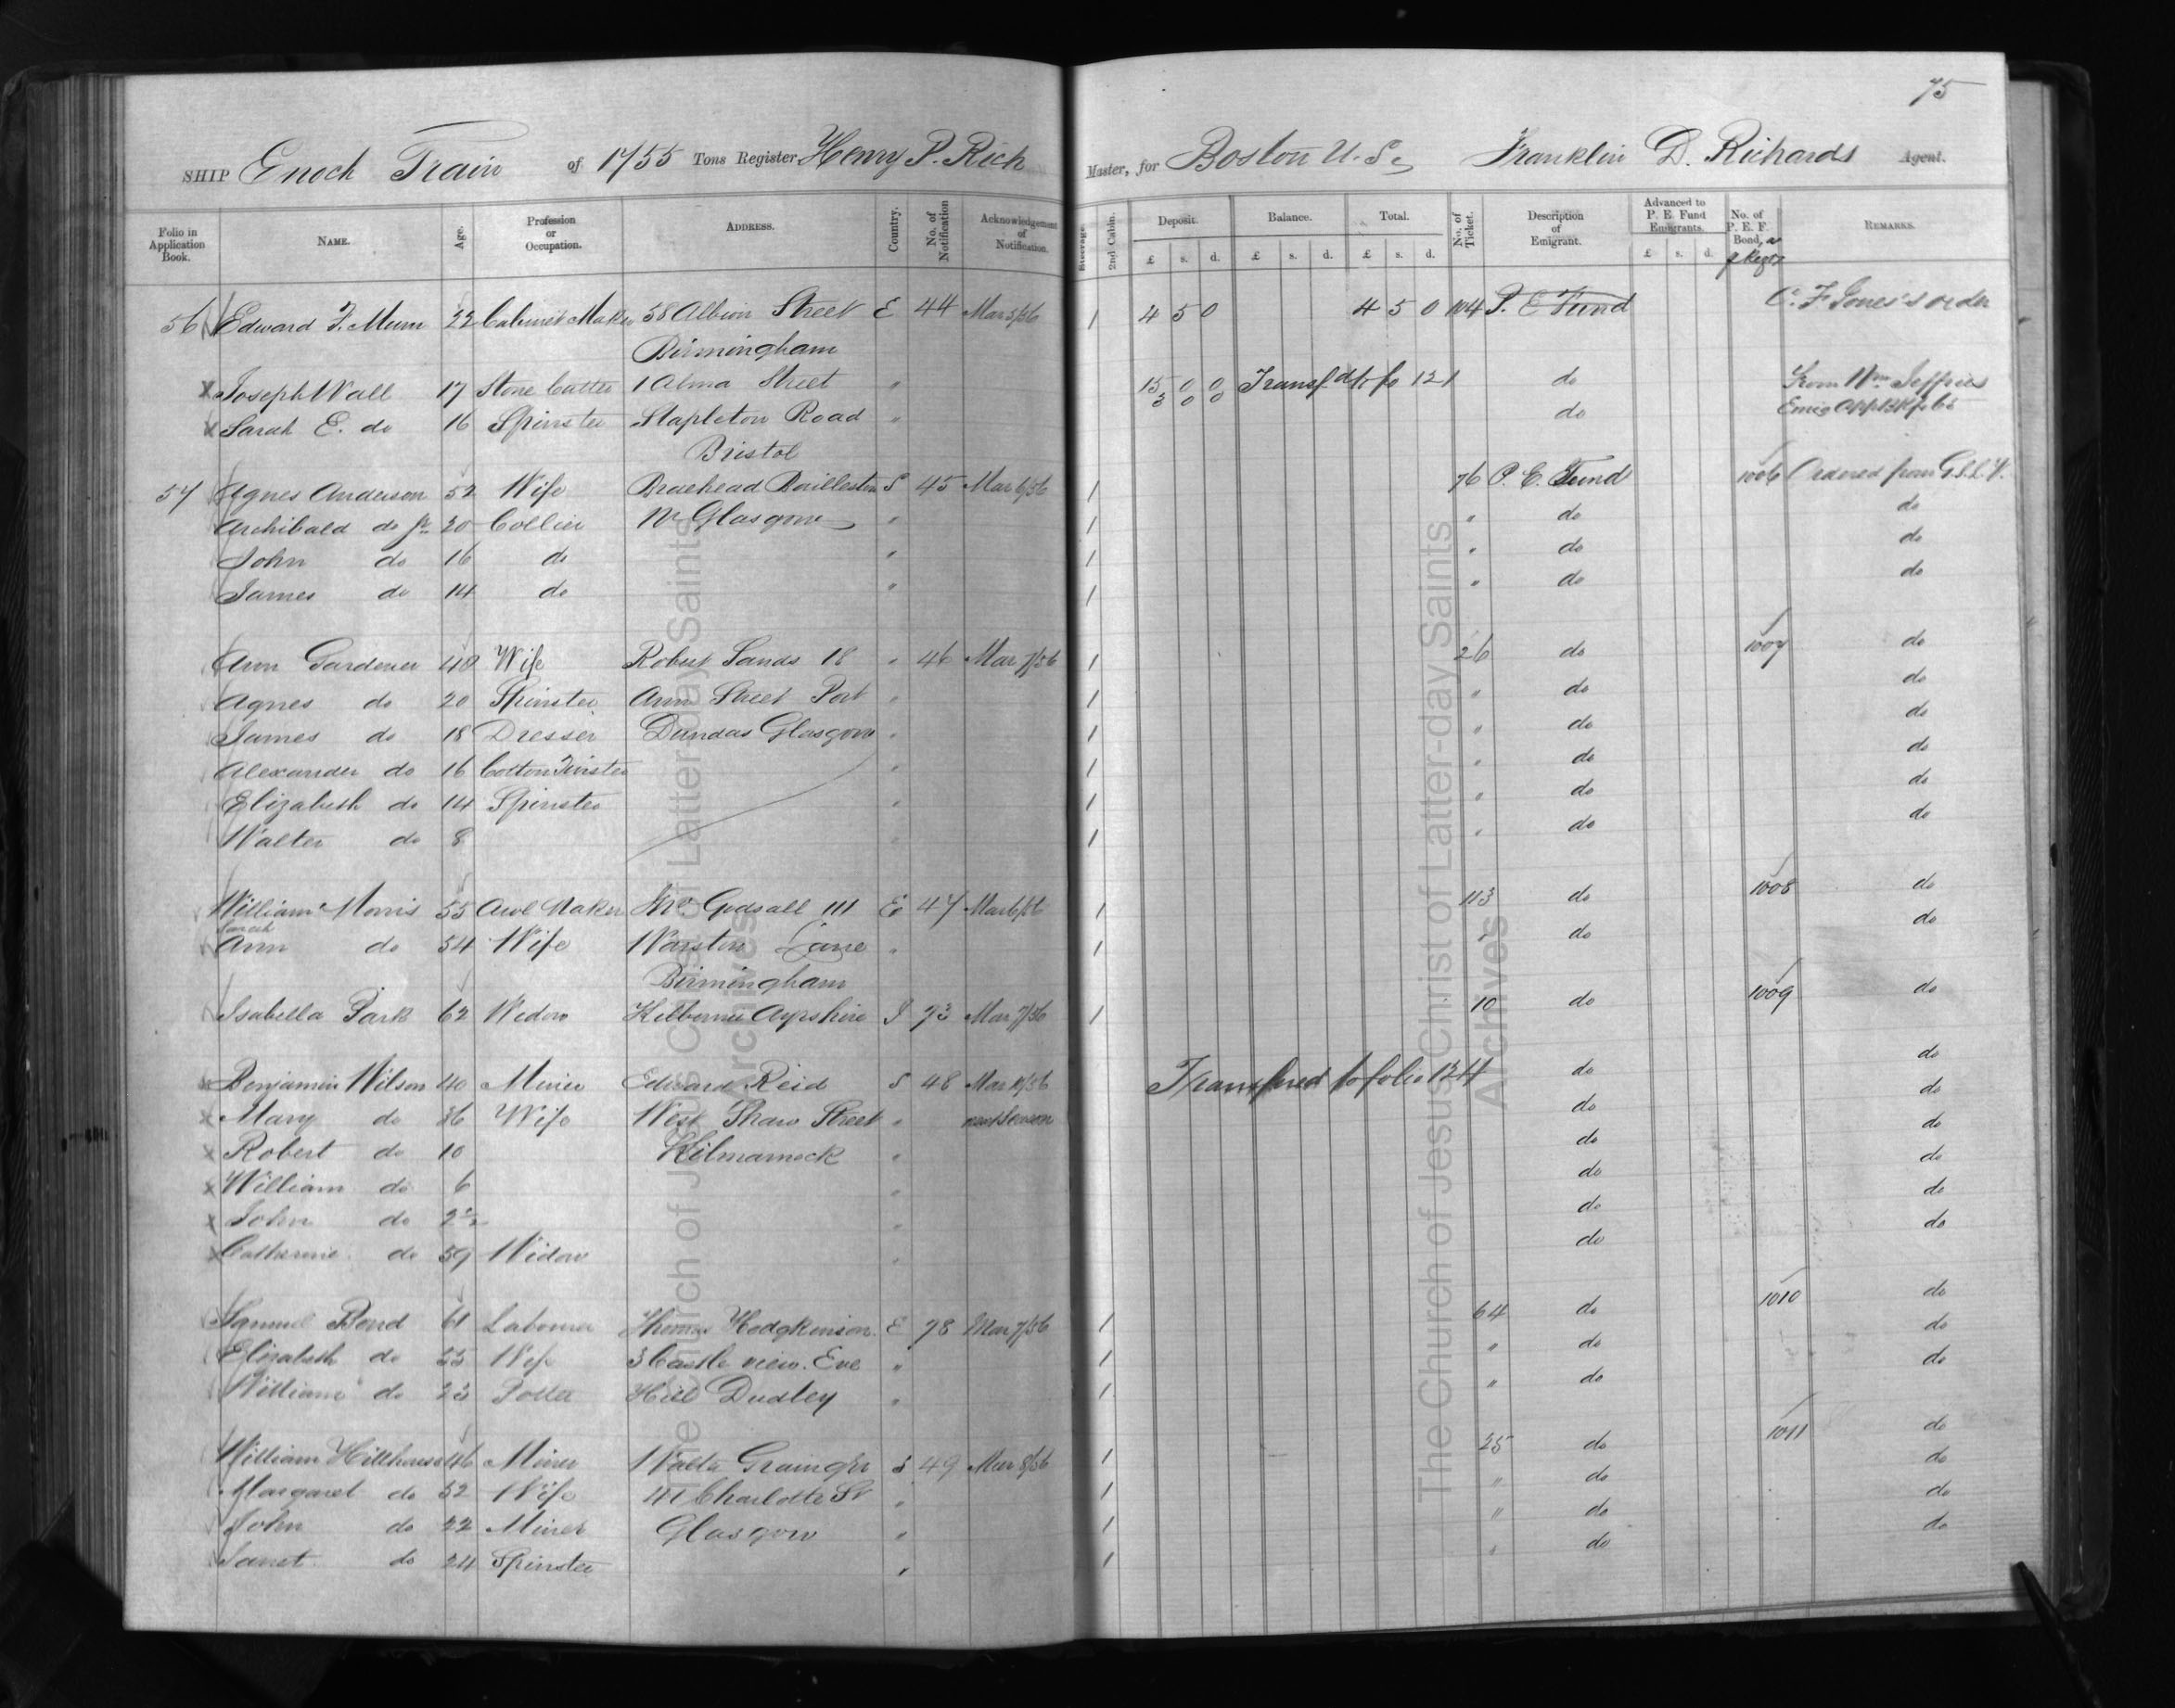 75
SHIP Enoch Train of 1755 Tons Register Henry P. Rich Master, for Boston U.S. Franklin D. Richards Agent.
Folio in Application Book. NAME. Age. Profession or Occupation. ADDRESS. Country. No. of Notification Acknowledgement of Notification. Steerage. 2nd Cabin. Deposit. £ s. d. Balance. £ s. d. Total. £ s. d. No. of Ticket. Description of Emigrant. Advanced to P. E. Fund Emigrants. £ s. d. No. of P. E. F. Bond, REMARKS.
56 Edward F. Munn 22 Cabinet Maker 58 Albion Street E 44 Mar 5/56 / 4 5 0 4 5 0 104 P. E Fund C. F Jones's order
Birmingham
x Joseph Wall 17 Stone Cutter 1 Alma Street " 15 0 0 Transf'd to fo 121 do From Wm Jeffries
x Sarah E. do 16 Spinster Stapleton Road " 3 0 0 do Emig App Bk fo 65
Bristol
57 Agnes Anderson 52 Wife Braehead Bailleston S 45 Mar 6/56 / 76 P. E. Fund 1006 Ordered from G.S.L.V.
Archibald do Jr 20 Collier Nr Glasgow " / " do do
John do 16 do " / " do do
James do 14 do " / " do do
Ann Gardener 40 Wife Robert Sands 18 " 46 Mar 7/56 / 26 do 1007 do
Agnes do 20 Spinster Ann Street Port " / " do do
James do 18 Dresser Dundas Glasgow " / " do do
Alexander do 16 Cotton Twister " / " do do
Elizabeth do 14 Spinster " / " do do
Walter do 8 " / " do do
William Morris 55 Awl Maker Jno. Godsall 111 E 47 Mar 6/56 / 113 do 1008 do
Sarah
Ann do 54 Wife Warston Lane " / " do do
Birmingham
Isabella Park 62 Widow Kilbirnie Ayrshire S 93 Mar 7/56 / 10 do 1009 do
x Benjamin Wilson 40 Miner Edward Reid S 48 Mar 10/56 Transfered to folio 124 do do
x Mary do 36 Wife West Shaw Street " next Season do do
x Robert do 10 Kilmarnock " do do
x William do 6 " do do
x John do 2½ " do do
x Catherine do 59 Widow " do do
Samuel Bond 61 Labourer Thomas Hodgkinson E 98 Mar 7/56 / 64 do 1010 do
Elizabeth do 55 Wife 3 Castle view. Eve " / " do do
William do 23 Potter Hill Dudley " / " do do
William Hillhouse 46 Miner Walter Grainger S 49 Mar 8/56 / 25 do 1011 do
Margaret do 52 Wife 41 Charlotte St " / " do do
John do 22 Miner Glasgow " / " do do
Janet do 24 Spinster " / " do do
The Church of Jesus Christ of Latter-day Saints
Archives
The Church of Jesus Christ of Latter-day Saints
Archives